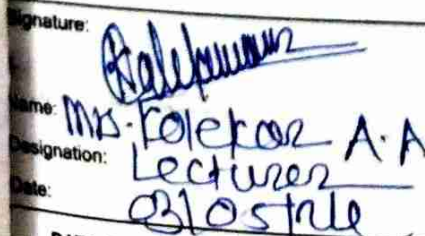 Signature:
Name: Mrs. Kolekar A.A
Designation: Lecturer
Date: